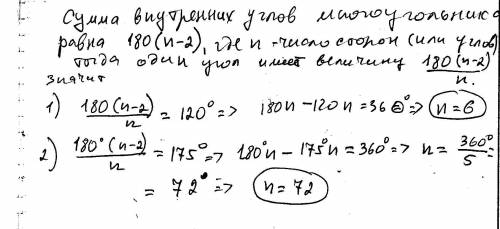 Сумма внутренних углов многоугольника
равна 180(n-2), где n - число сторон (или углов)
тогда один угол имеет величину 180(n-2)/n.
значит
1) 180(n-2)/n = 120° => 180n - 120n = 360° => n = 6
2) 180°(n-2)/n = 175° => 180°n - 175°n = 360° => n = 360°/5 =
= 72° => n = 72